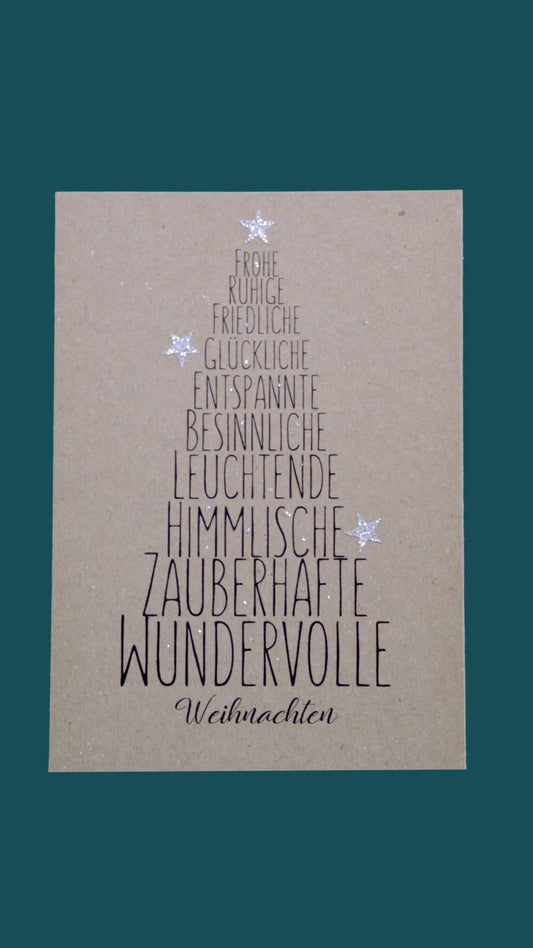 FROHE
RUHIGE
FRIEDLICHE
GLÜCKLICHE
ENTSPANNTE
BESINNLICHE
LEUCHTENDE
HIMMLISCHE
ZAUBERHAFTE
WUNDERVOLLE
Weihnachten